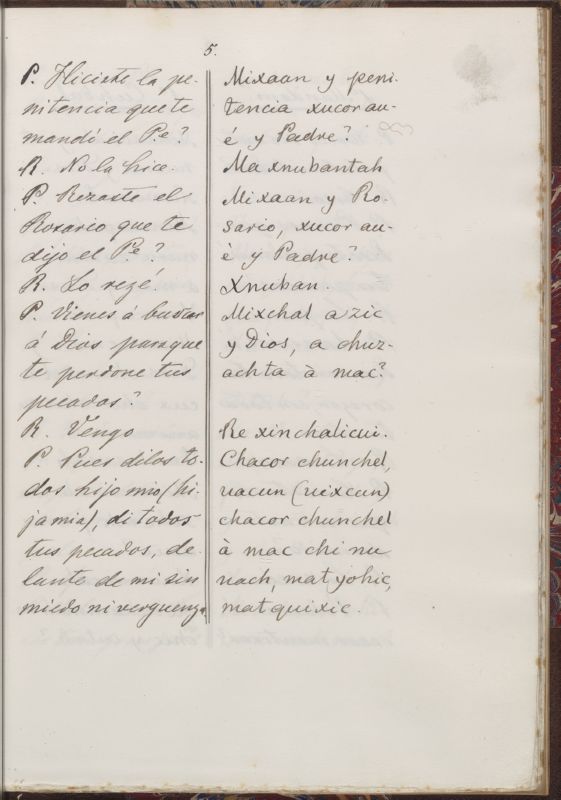 5.
P. Hiciste la pe-
nitencia que te
mandó el P.e?
R. No la hice.
P. Rezaste el
Rosario que te
dijo el P.e?
R. Lo rezé.
P. Vienes á buscar
á Dios paraque
te perdone tus
pecados?
R. Vengo
P. Pues dilos to-
dos hijo mio (hi-
ja mia), di todos
tus pecados, de-
lante de mi sin
miedo ni verguenza
Mixaan y peni-
tencia xucor au-
é y Padre?
Ma xnubantah
Mixaan y Ro-
sario, xucor au-
è y Padre?
Xnuban.
Mixchal a zic
y Dios, a chuz-
achta à mac?
Re xinchalicui.
Chacor chunchel,
uacun (uixcun)
chacor chunchel
à mac chi nu
uach, mat yohic,
mat quixic.